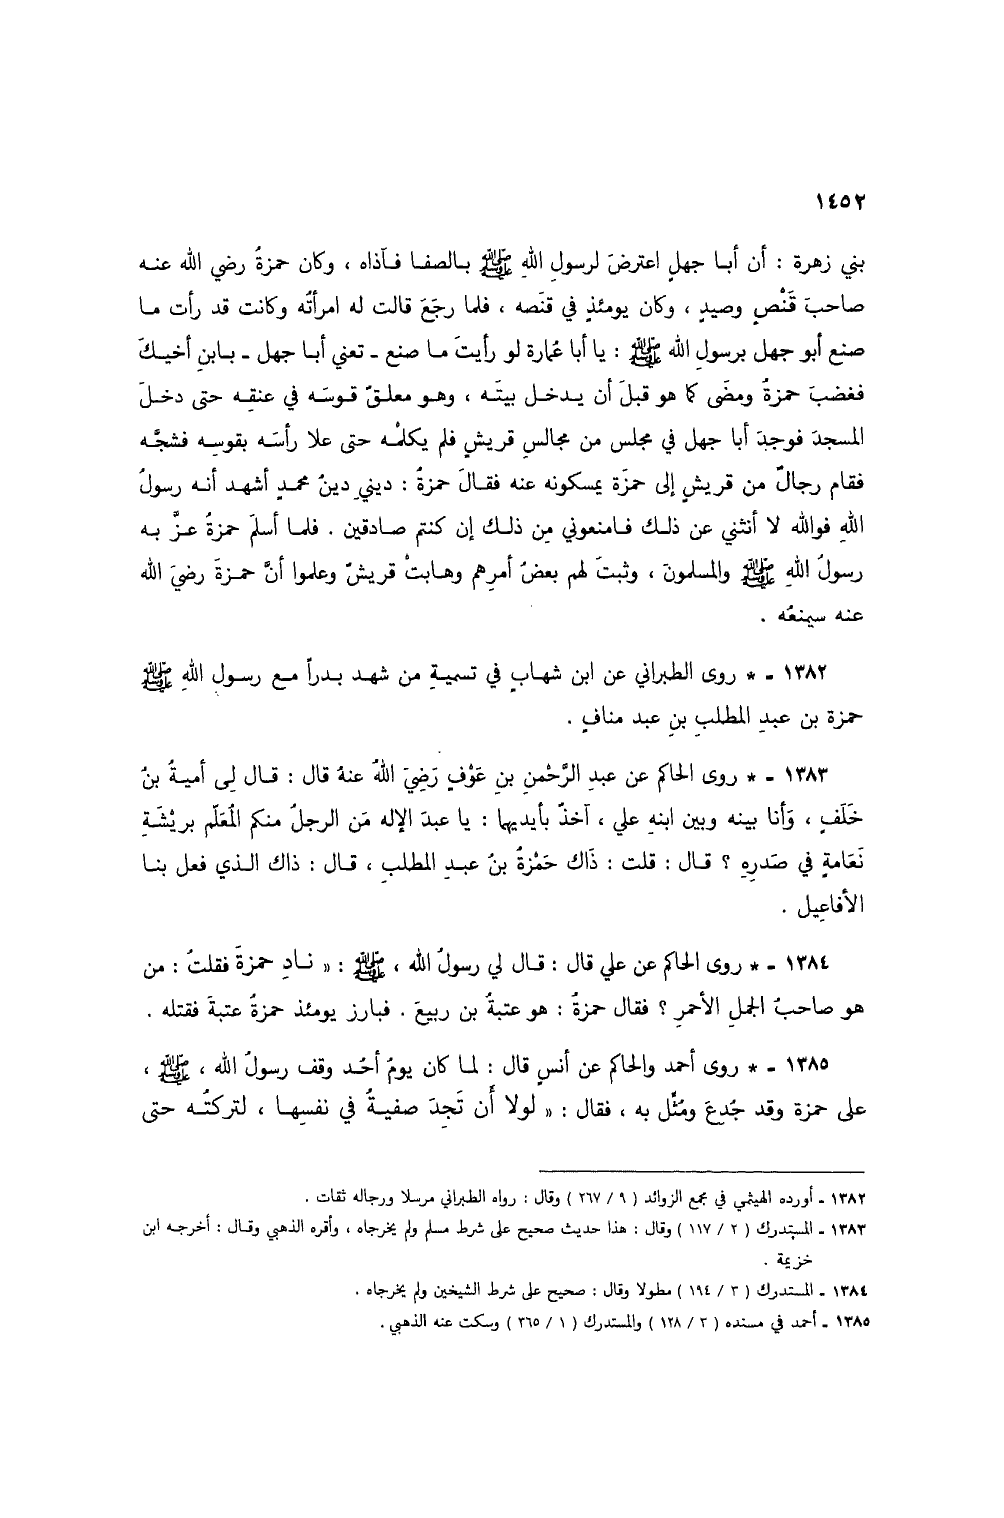 ١٤٥٢
بني زهرة : أن أبا جهلٍ اعترضَ لرسولِ اللهِ ﷺ بالصفا فآذاه ، وكان حمزةُ رضي الله عنه
صاحبَ قَنْصٍ وصيدٍ ، وكان يومئذٍ في قنَصه ، فلما رجَعَ قالت له امرأتُه وكانت قد رأت ما
صنع أبو جهل برسولِ الله ﷺ : يا أبا عُمارة لو رأيتَ ما صنع ـ تعني أبا جهل ـ بابنِ أخيكَ
فغضبَ حمزةُ ومضَى كما هو قبلَ أن يدخلَ بيتَه ، وهو معلقٌ قوسَه في عنقِه حتى دخلَ
المسجدَ فوجدَ أبا جهل في مجلس من مجالسِ قريشٍ فلم يكلمْه حتى علا رأسَه بقوسِه فشجَّه
فقام رجالٌ من قريشٍ إلى حمزَة يمسكونه عنه فقالَ حمزةُ : ديني دينُ محمدٍ أشهد أنه رسولُ
اللهِ فوالله لا أنثني عن ذلك فامنعوني مِن ذلك إن كنتم صادقين . فلما أسلَم حمزةُ عزَّ به
رسولُ اللهِ ﷺ والمسلمونَ ، وثبتَ لهم بعضُ أمرِهم وهابتْ قريشٌ وعلموا أنَّ حمزةَ رضيَ الله
عنه سيمنعُه .
١٣٨٢ ـ * روى الطبراني عن ابن شهابٍ في تسميةِ من شهد بدراً مع رسولِ اللهِ ﷺ
حمزة بن عبدِ المطلبِ بنِ عبد منافٍ .
١٣٨٣ ـ * روى الحاكم عن عبدِ الرَّحْمنِ بنِ عَوْفٍ رَضِيَ اللهُ عنهُ قال : قال لِي أميةُ بنُ
خَلَفٍ ، وَأنا بينه وبين ابنهِ علي ، آخذٌ بأيديهما : يا عبدَ الإله مَن الرجلُ منكم المُعَلّم بريْشَةِ
نَعَامةٍ في صَدرِهِ ؟ قال : قلت : ذَاك حَمْزةُ بنُ عبدِ المطلبِ ، قال : ذاك الذي فعل بنا
الأفاعِيل .
١٣٨٤ ـ * روى الحاكم عن علي قال : قال لي رسولُ الله ، ﷺ : « نادِ حمزةَ فقلتُ : من
هو صاحبُ الجملِ الأحمرِ ؟ فقال حمزةُ : هو عتبةُ بن ربيعَ . فبارز يومئذ حمزةُ عتبةَ فقتله .
١٣٨٥ ـ * روى أحمد والحاكم عن أنسٍ قال : لما كان يومُ أحُد وقف رسولُ الله ، ﷺ ،
على حمزة وقد جُدِعَ ومُثِّل به ، فقال : « لولا أَن تَجِدَ صفيةُ في نفسِها ، لتركتُه حتى
١٣٨٢ ـ أورده الهيثمي في مجمع الزوائد ( ٩ / ٢٦٧ ) وقال : رواه الطبراني مرسلا ورجاله ثقات .
١٣٨٣ ـ المستدرك ( ٢ / ١١٧ ) وقال : هذا حديث صحيح على شرط مسلم ولم يخرجاه ، وأقره الذهبي وقال : أخرجه ابن
خزيمة .
١٣٨٤ ـ المستدرك ( ٣ / ١٩٤ ) مطولا وقال : صحيح على شرط الشيخين ولم يخرجاه .
١٣٨٥ ـ أحمد في مسنده ( ٣ / ١٢٨ ) والمستدرك ( ١ / ٣٦٥ ) وسكت عنه الذهبي .